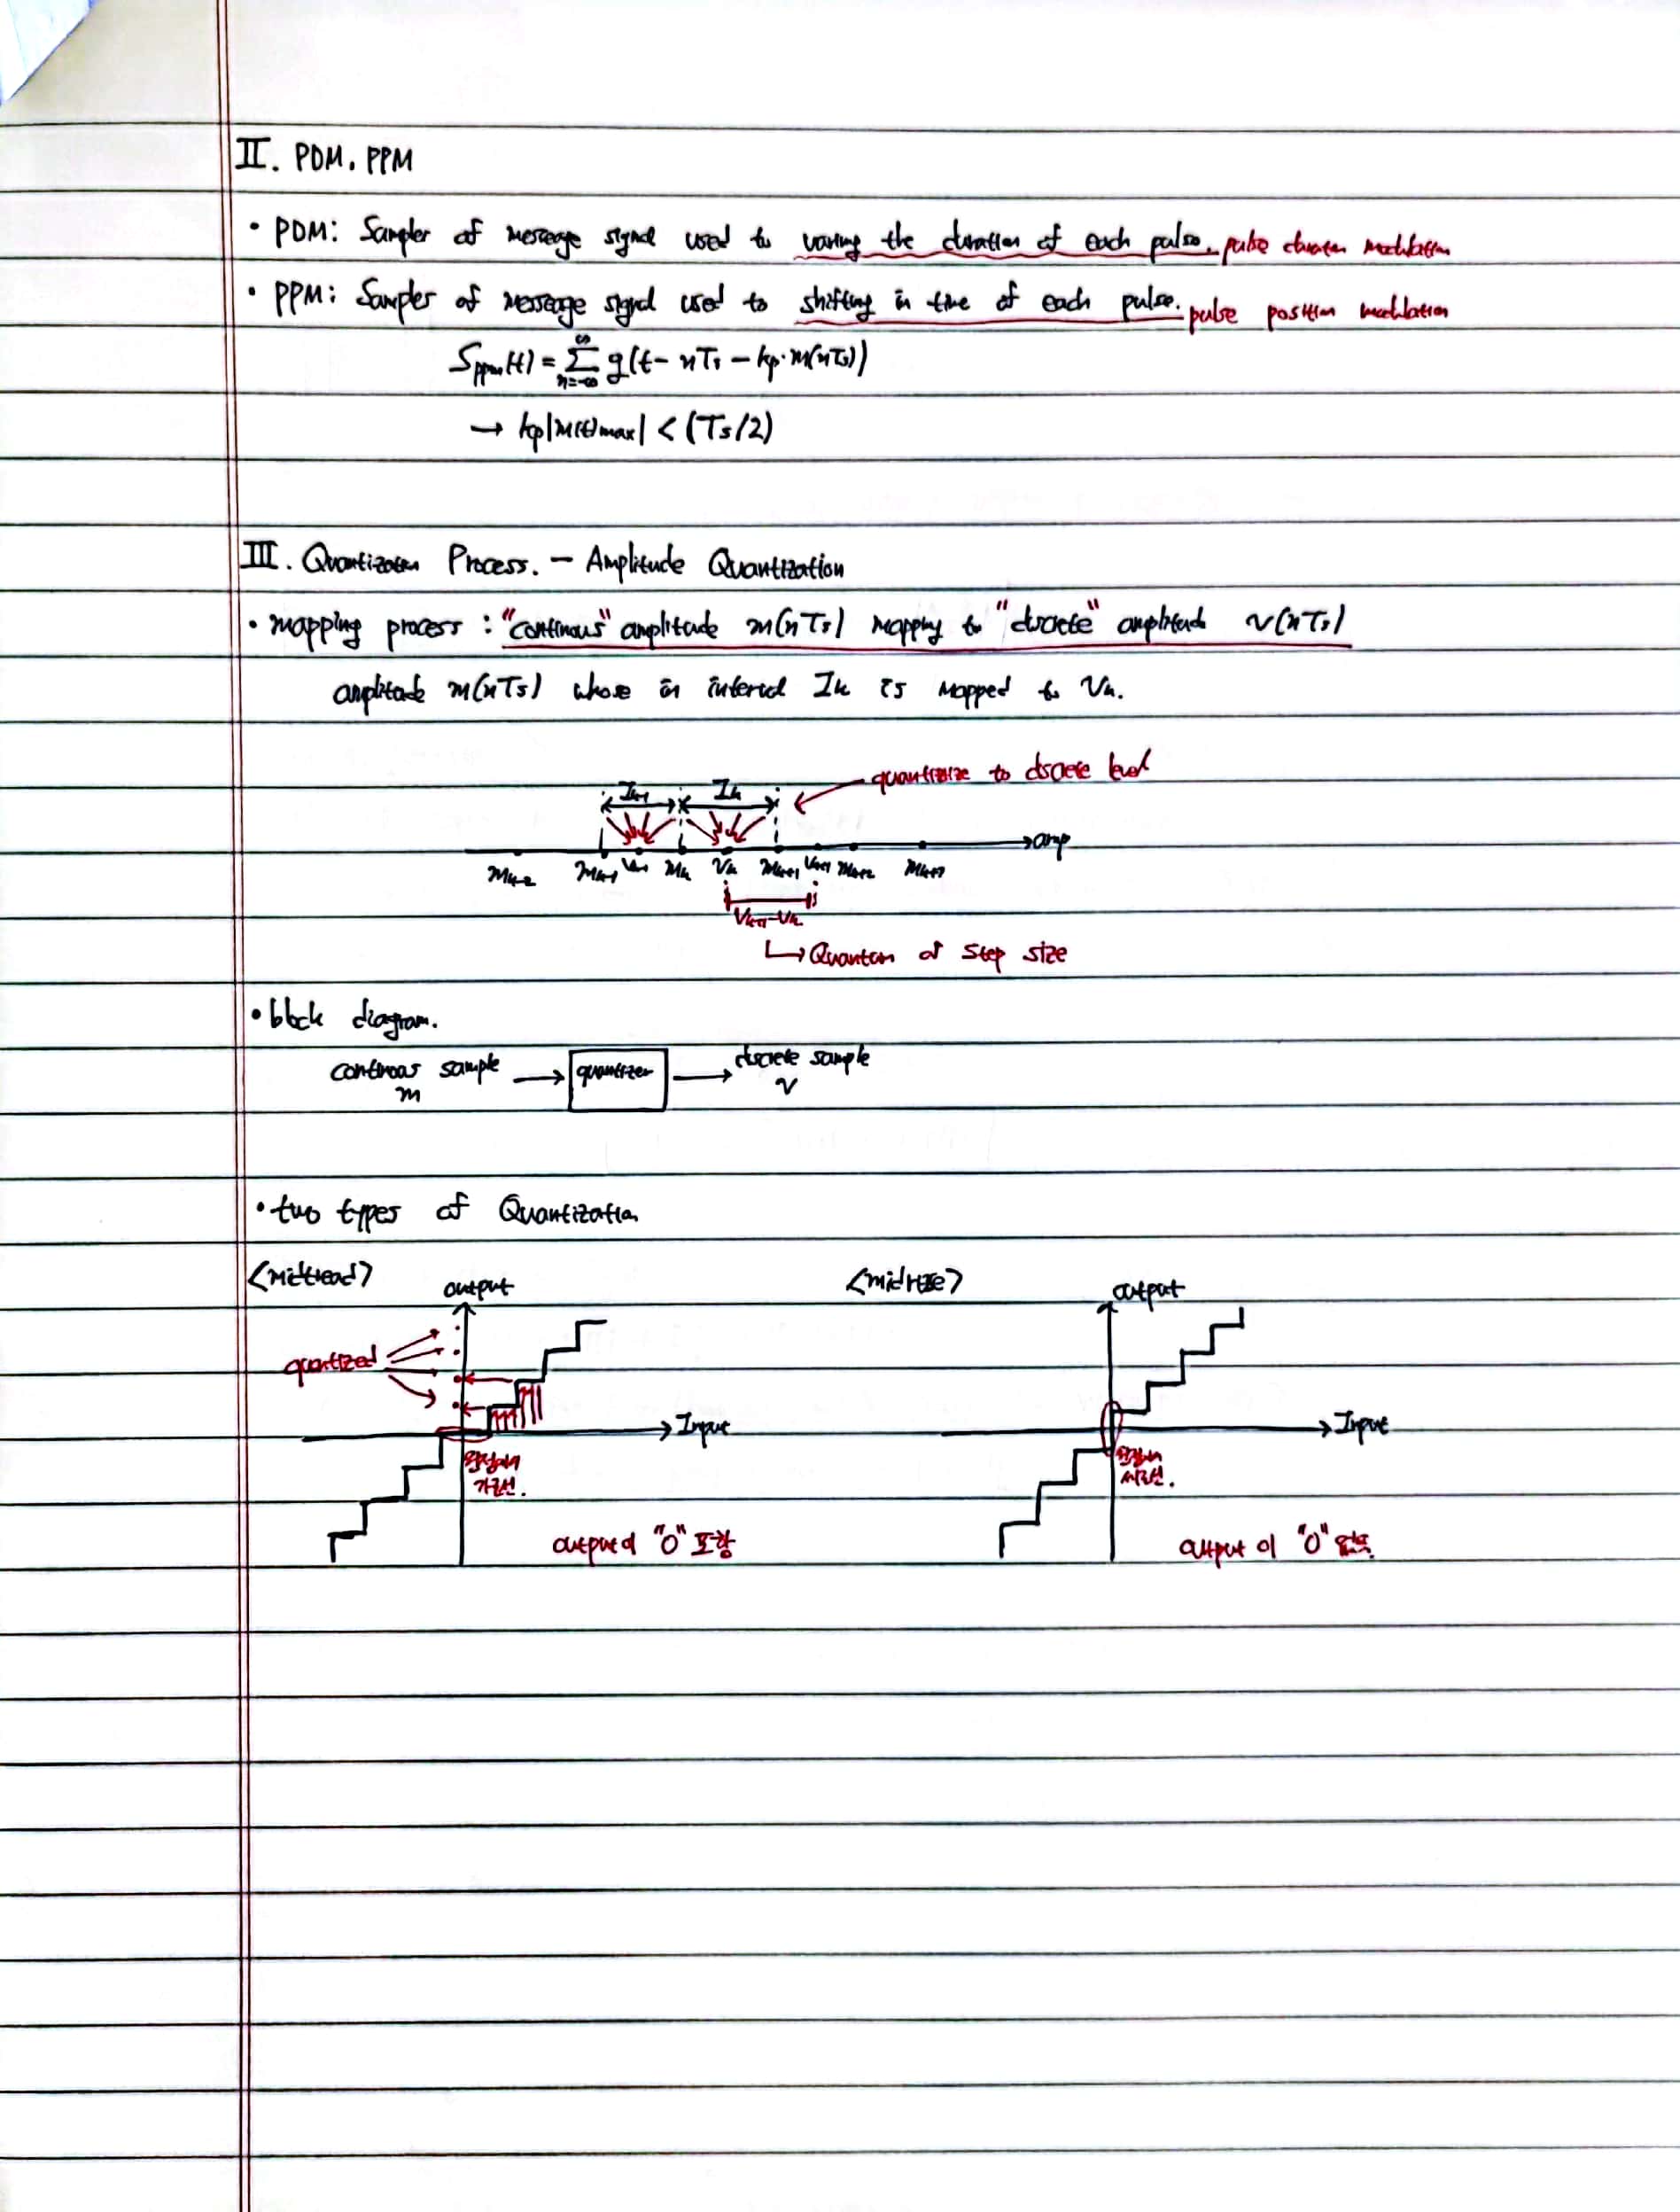 II. PDM, PPM
• PDM: Sampler of message signal used to varing the duration of each pulse. pulse duration modulation
• PPM: Sampler of message signal used to shifting in time of each pulse. pulse position modulation
Sppm(t) = ∑_{n=-∞}^{∞} g(t - nTs - kp·m(nTs))
→ kp|m(t)max| < (Ts/2)
III. Quantization Process. - Amplitude Quantization
• mapping process : "continous" amplitude m(nTs) mapping to "discrete" amplitude v(nTs)
amplitude m(nTs) whose in interval Ik is mapped to Vk.
quantisize to discrete level
Ik-1 Ik
amp
mk-2 mk-1 Vk-1 mk Vk mk+1 Vk+1 mk+2 mk+3
Vk+1-Vk
↳ Quantom of step size
• block diagram.
continous sample → quantizer → discrete sample
m v
• two types of Quantization
<midtread> <midrize>
output output
quantized
Input Input
원점에서 원점에서
가로선. 세로선.
output에 "0" 포함 output에 "0" 없음.